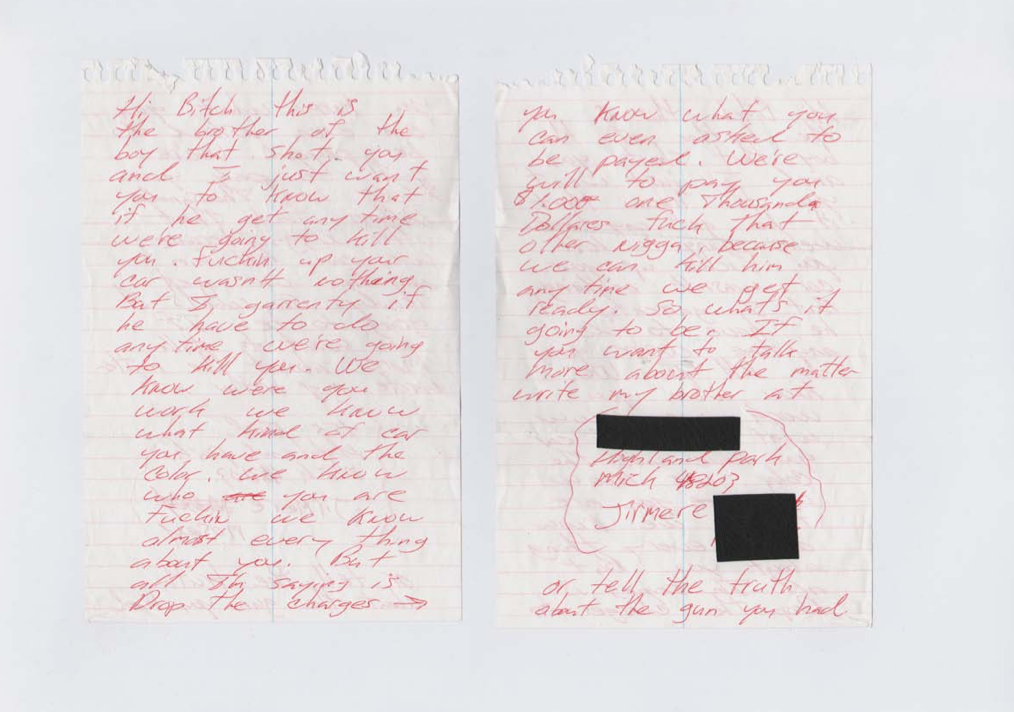 Hi, Bitch this is
the brother of the
boy that shot you
and I just want
you to know that
if he get any time
we're going to kill
you. Fuckin up your
car wasn't nothing
But I garrenty if
he have to do
any time we're going
to kill you. We
know were you
work we know
what kind of car
you have and the
color. we know
who you are
Fuckin we know
almost every thing
about you. But
all I'm saying is
Drop the charges →
you know what you
can even asked to
be payed. We're
will to pay you
$1.000 one Thousand
Dollares fuck that
other nigga, because
we can kill him
any time we get
ready. So what's it
going to be. If
you want to talk
more about the matter
write my brother at
Highland Park
Mich 48203
Jirmere
or tell the truth
about the gun you had